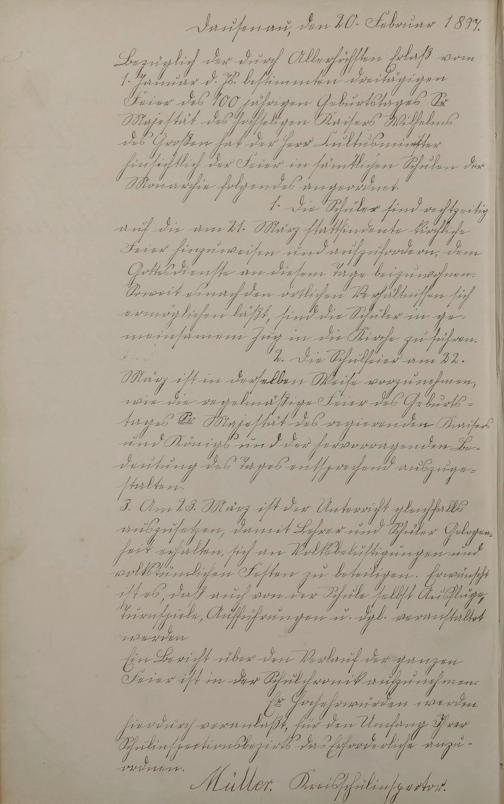 Dausenau, den 20. Februar 1897.
Bezüglich der durch Allerhöchsten Erlaß vom
1. Januar d. Js. bestimmten dreitägigen
Feier des 100 jährigen Geburtstages Sr
Majestät des hochseligen Kaisers Wilhelms
des Großen hat der Herr Kultusminister
hinsichtlich der Feier in sämtlichen Schulen der
Monarchie folgendes angeordnet
1. Die Schüler sind rechtzeitig
auf die am 21. März stattfindente kirchliche
Feier hinzuweisen und aufzufordern, dem
Gottesdienste an diesem Tage beizuwohnen.
Soweit es nach den örtlichen Verhältnissen sich
ermöglichen läßt, sind die Schüler in ge-
meinsamem Zug in die Kirche zu führen.
2. Die Schulfeier am 22.
März ist in derselben Weise vorzunehmen,
wie die regelmäßige Feier des Geburts-
tages Sr Majestät des regierenden Kaisers
und Königs und der hervorragenden Be-
deutung des Tages entsprechend auszuge-
stalten.
3. Am 23. März ist der Unterricht gleichfalls
auszusetzen, damit Lehrer und Schüler Gelegen-
heit erhalten, sich an Volksbelustigungen und
volkstümlichen Festen zu beteiligen. Erwünscht
ist es, daß auch von der Schule selbst Ausflüge,
Turnspiele, Aufführungen u. dgl. veranstaltet
werden
Ein Bericht über den Verlauf der ganzen
Feier ist in der Schulchronik aufzunehmen.
Hochehrwürden werden
hierdurch veranlaßt, für den Umfang Ihrer
Schulinspectionsbezirks das Erforderliche anzu-
ordnen.
Müller. Kreisschulinspector.